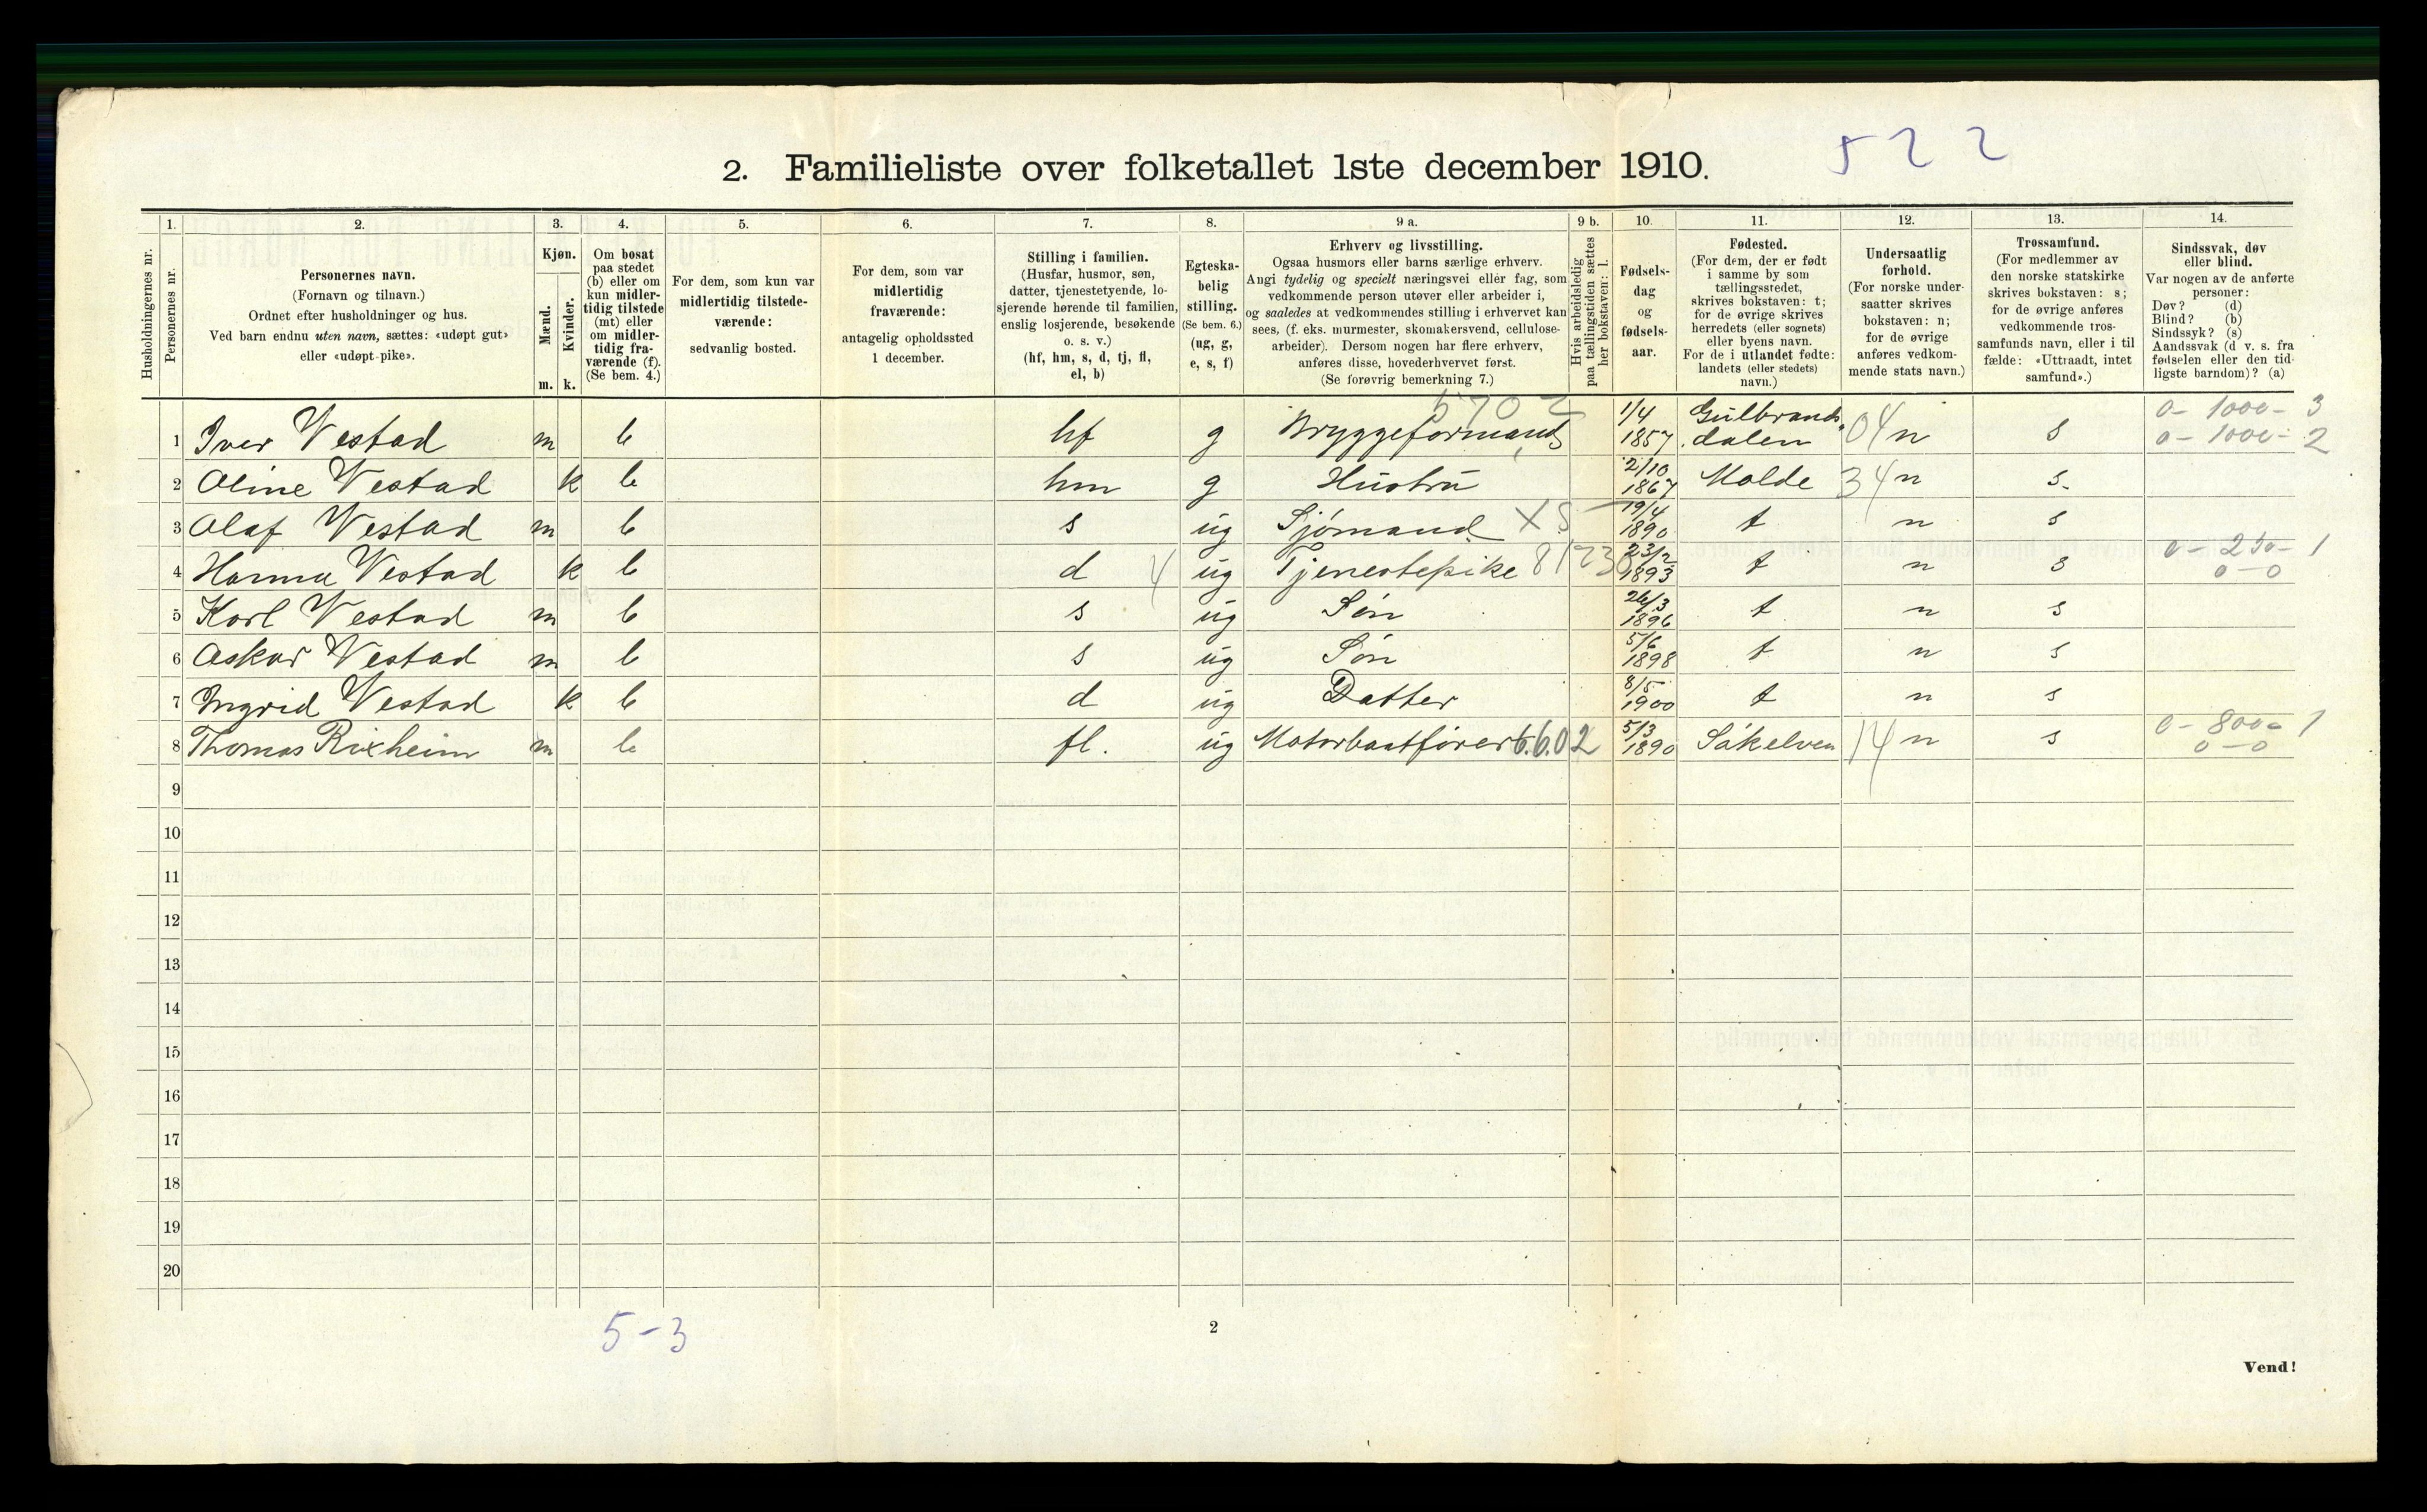 522
2. Familieliste over folketallet 1ste december 1910.
Husholdningernes nr.
1. Personernes nr.
2. Personernes navn.
(Fornavn og tilnavn.)
Ordnet efter husholdninger og hus.
Ved barn endnu uten navn, sættes: «udøpt gut»
eller «udøpt pike».
3. Kjøn.
Mænd. m.
Kvinder. k.
4. Om bosat
paa stedet
(b) eller om
kun midler-
tidig tilstede
(mt) eller
om midler-
tidig fra-
værende (f).
(Se bem. 4.)
5. For dem, som kun var
midlertidig tilstede-
værende:
sedvanlig bosted.
6. For dem, som var
midlertidig
fraværende:
antagelig opholdssted
1 december.
7. Stilling i familien.
(Husfar, husmor, søn,
datter, tjenestetyende, lo-
sjerende hørende til familien,
enslig losjerende, besøkende
o. s. v.)
(hf, hm, s, d, tj, fl,
el, b)
8. Egteska-
belig
stilling.
(Se bem. 6.)
(ug, g,
e, s, f)
9 a. Erhverv og livsstilling.
Ogsaa husmors eller barns særlige erhverv.
Angi tydelig og specielt næringsvei eller fag, som
vedkommende person utøver eller arbeider i,
og saaledes at vedkommendes stilling i erhvervet kan
sees, (f. eks. murmester, skomakersvend, cellulose-
arbeider). Dersom nogen har flere erhverv,
anføres disse, hovederhvervet først.
(Se forøvrig bemerkning 7.)
9 b. Hvis arbeidsledig
paa tællingstiden sættes
her bokstaven: l.
10. Fødsels-
dag
og
fødsels-
aar.
11. Fødested.
(For dem, der er født
i samme by som
tællingsstedet,
skrives bokstaven: t;
for de øvrige skrives
herredets (eller sognets)
eller byens navn.
For de i utlandet fødte:
landets (eller stedets)
navn.)
12. Undersaatlig
forhold.
(For norske under-
saatter skrives
bokstaven: n;
for de øvrige
anføres vedkom-
mende stats navn.)
13. Trossamfund.
(For medlemmer av
den norske statskirke
skrives bokstaven: s;
for de øvrige anføres
vedkommende tros-
samfunds navn, eller i til
fælde: «Uttraadt, intet
samfund».)
14. Sindssvak, døv
eller blind.
Var nogen av de anførte
personer:
Døv? (d)
Blind? (b)
Sindssyk? (s)
Aandssvak (d v. s. fra
fødselen eller den tid-
ligste barndom)? (a)
1 Iver Vestad m b hf g Bryggeformand 5702 1/4 1857 Gulbrands-dalen 04 n s 0-1000-3 0-1000-2
2 Oline Vestad k b hm g Hustru 2/10 1867 Molde 34 n s.
3 Olaf Vestad m b s ug Sjømand XS 19/4 1890 t n s
4 Hanna Vestad k b d 4 ug Tjenestepike 8123 23/2 1893 t n s 0-250-1 0-0
5 Karl Vestad m b s ug Søn 26/3 1896 t n s
6 Askar Vestad m b s ug Søn 5/6 1898 t n s
7 Ingrid Vestad k b d ug Datter 8/5 1900 t n s
8 Thomas Rixheim m b fl. ug Motorbaatfører 6.6.02 5/3 1890 Søkelven 14 n s 0-800-1 0-0
9
10
11
12
13
14
15
16
17
18
19
20
5-3
2
Vend!